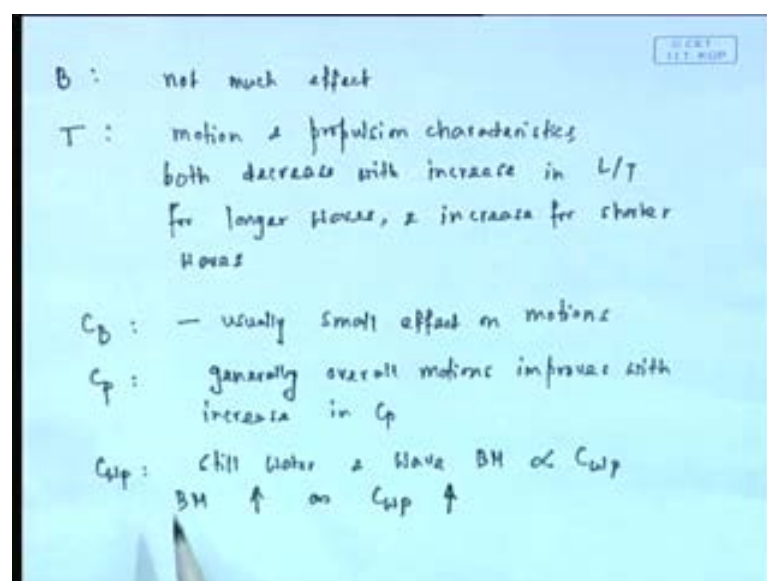 © CET
I.I.T. KGP
B : not much effect
T : motion & propulsion characteristics
both decrease with increase in L/T
for longer waves, & increase for shorter
waves
C_B : — usually small effect on motions
C_P : generally overall motions improves with
increase in C_P
C_WP : Still water & Wave BM ∝ C_WP
BM ↑ as C_WP ↑